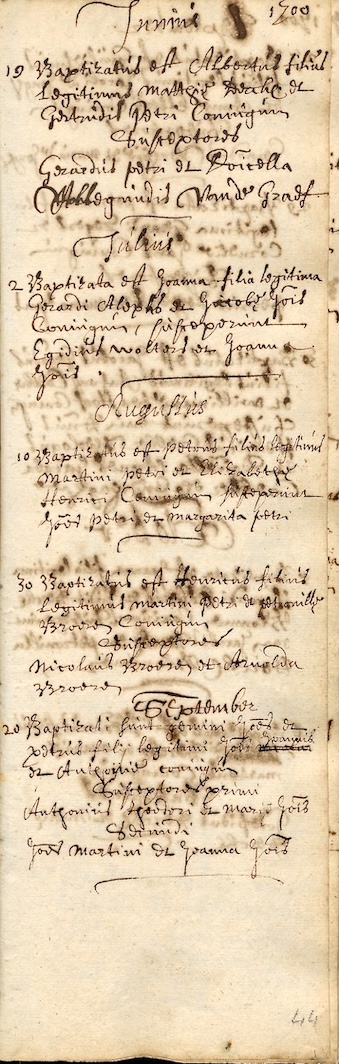 Junius 1700
19 Baptizatus est Albertus filius
Legitimus Matthiæ et
Gertrudis Petri Coniugum
Susceptores
Gerardus petri et Doicella
Van de Graef
Julius
2 Baptizata est Joanna filia legitima
Gerardi Alephs et Jacobæ Jois
Coniugum, susceperunt
Egidius Wolters et Joanna
Jois
Augustus
10 Baptizatus est Petrus filius legitimus
Martini Petri et Elizabethæ
Henrici Coniugum susceperunt
Joes Petri et Margarita Petri
30 Baptizatus est Henricus filius
Legitimus Martini Petri et Petronillæ
Broeren Coniugum
Susceptores
Nicolaus Broeren et Arnolda
Broeren
September
20 Baptizati sunt gemini Joes et
petrus filij legitimi Jois Joannis
et Anthoniæ coniugum
Susceptores primi
Anthonius Theodori et Maria Jois
Secundi
Joes Martini et Joanna Jois
44